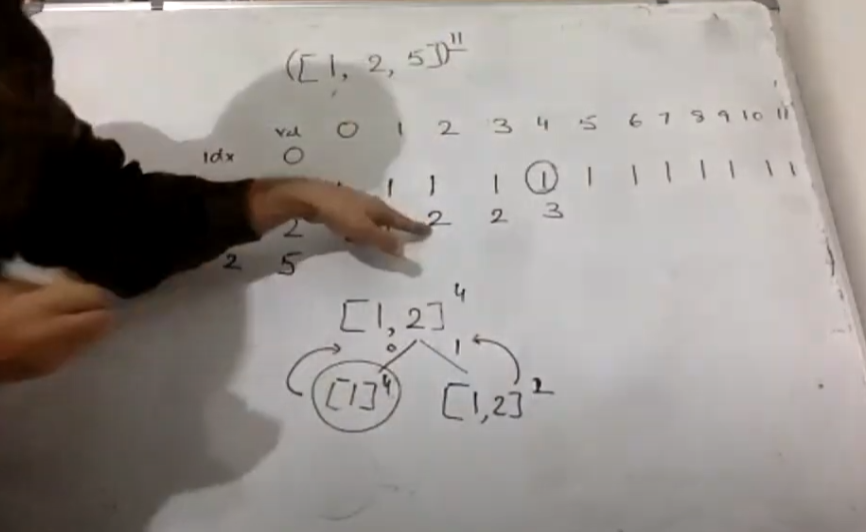 ([1, 2, 5])11
val 0 1 2 3 4 5 6 7 8 9 10 11
Idx 0
1 1 1 1 1 1 1 1 1 1 1 1
2 2 2 3
2 5
[1, 2]4
0 1
[1]4 [1,2]2